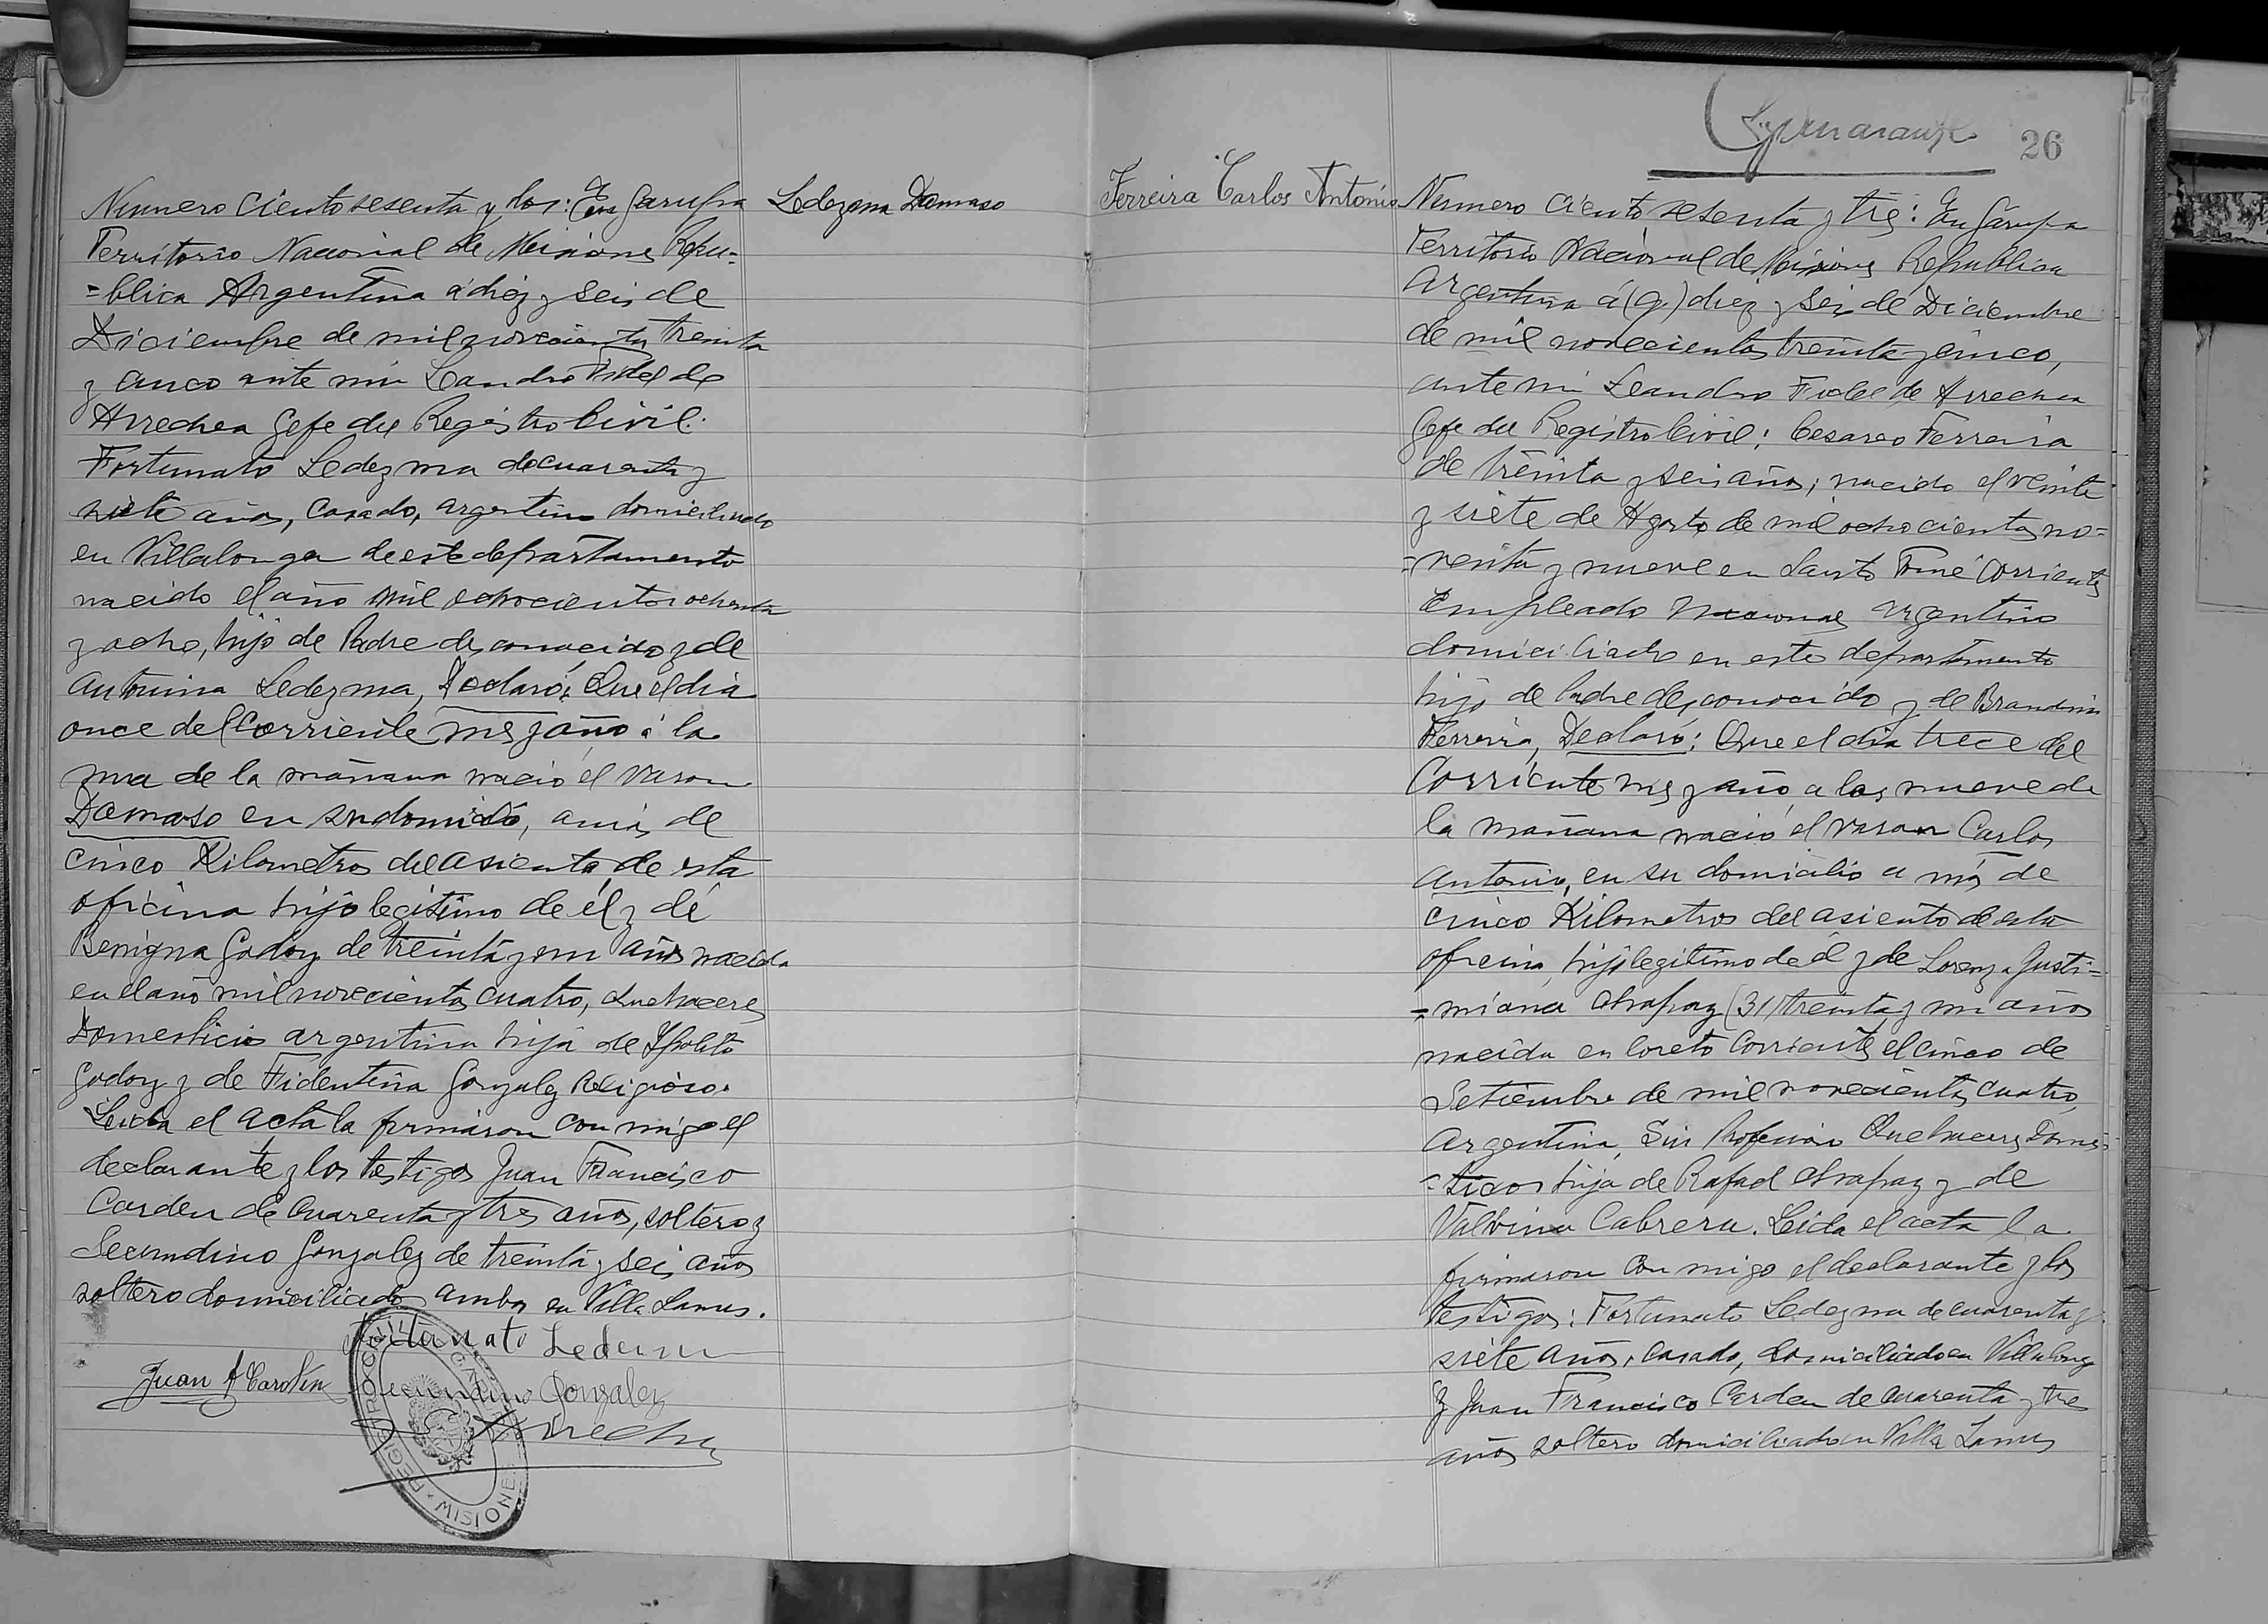 Numero ciento sesenta y dos: En Garupa
Territorio Nacional de Misiones Repu=
=blica Argentina á diez y seis de
Diciembre de mil novecientos treinta
y cinco ante mi Leandro Fidel de
Arrechea Gefe del Registro Civil:
Fortunato Ledezma de cuarenta y
siete años, casado, argentino domiciliado
en Villalonga de este departamento
nacido el año mil ochocientos ochenta
y ocho, hijo de Padre desconocido y de
Antonina Ledezma, Declaró: Que el dia
once del corriente mes y año á la
una de la mañana nació el varon
Damaso en su domicilio, a mas de
cinco Kilometros del asiento de esta
oficina hijo legitimo de él y de
Benigna Godoy de treinta y un años nacida
en el año mil novecientos cuatro, quehaceres
Domesticos argentina hija de Ypolito
Godoy y de Fidentina Gonzalez Religioso.
Leida el acta la firmaron con migo el
declarante y los testigos Juan Francisco
Carden de cuarenta y tres años, soltero y
Secundino Gonzalez de treinta y seis años
soltero domiciliados ambos en Villa Lanus.
Fortunato Ledezma
Juan F Carden
Secundino Gonzalez
Arrechea
REGISTRO CIVIL
MISIONES
Ledezma Damaso
26
Ferreira Carlos Antonio
Numero ciento sesenta y tres: En Garupa
Territorio Nacional de Misiones Republica
Argentina á (g) diez y seis de Diciembre
de mil novecientos treinta y cinco,
ante mi Leandro Fidel de Arrechea
Gefe del Registro Civil: Cesareo Ferreira
de treinta y seis años, nacido el veinte
y siete de Agosto de mil ochocientos no=
=venta y nueve en Santo Tomé Corrientes
Empleado Nacional argentino
domiciliado en este departamento
hijo de Padre desconocido y de
Ferreira, Declaró: Que el dia trece del
Corriente mes y año, a las nueve de
la mañana nació el varon Carlos
Antonio, en su domicilio a más de
cinco Kilometros del asiento de esta
oficina, hijo legitimo de él y de Lorenza Justi=
=niana (31) treinta y un años
nacida en Loreto Corrientes el cinco de
Setiembre de mil novecientos cuatro,
Argentina, Sin Profesion Quehaceres Domes
=ticos hija de Rafael y de
Valvina Cabrera. Leida el acta la
firmaron con migo el declarante y los
testigos: Fortunato Ledezma de cuarenta y
siete años, casado, domiciliado en Villalonga
y Juan Francisco Carden de cuarenta y tres
años soltero domiciliado en Villa Lanus